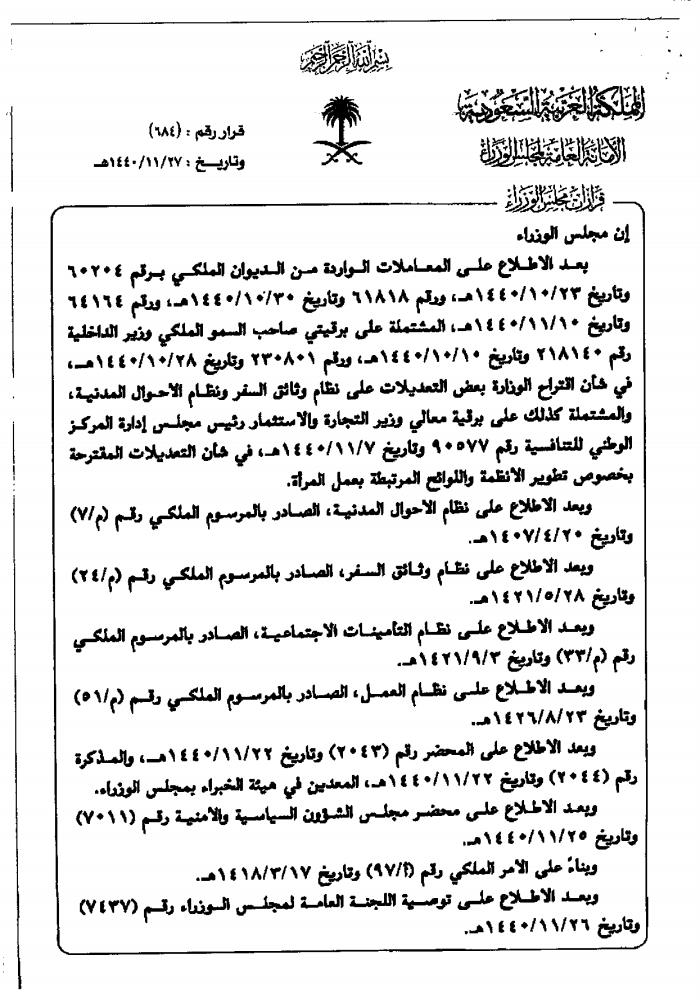 بسم الله الرحمن الرحيم
المملكة العربية السعودية
الأمانة العامة لمجلس الوزراء
قرار رقم : (٦٨٤)
وتاريخ : ١٤٤٠/١١/٢٧هـ
قرارات مجلس الوزراء
إن مجلس الوزراء
بعد الاطلاع على المعاملات الواردة من الديوان الملكي برقم ٦٠٢٠٤
وتاريخ ١٤٤٠/١٠/٢٣هـ، ورقم ٦١٨١٨ وتاريخ ١٤٤٠/١٠/٣٠هـ، ورقم ٦٤١٦٤
وتاريخ ١٤٤٠/١١/١٠هـ، المشتملة على برقيتي صاحب السمو الملكي وزير الداخلية
رقم ٢١٨١٤٠ وتاريخ ١٤٤٠/١٠/١٠هـ، ورقم ٢٣٠٨٠١ وتاريخ ١٤٤٠/١٠/٢٨هـ،
في شأن اقتراح الوزارة بعض التعديلات على نظام وثائق السفر ونظام الأحوال المدنية،
والمشتملة كذلك على برقية معالي وزير التجارة والاستثمار رئيس مجلس إدارة المركز
الوطني للتنافسية رقم ٩٠٥٧٧ وتاريخ ١٤٤٠/١١/٧هـ، في شأن التعديلات المقترحة
بخصوص تطوير الأنظمة واللوائح المرتبطة بعمل المرأة.
وبعد الاطلاع على نظام الأحوال المدنية، الصادر بالمرسوم الملكي رقم (م/٧)
وتاريخ ١٤٠٧/٤/٢٠هـ.
وبعد الاطلاع على نظام وثائق السفر، الصادر بالمرسوم الملكي رقم (م/٢٤)
وتاريخ ١٤٢١/٥/٢٨هـ.
وبعد الاطلاع على نظام التأمينات الاجتماعية، الصادر بالمرسوم الملكي
رقم (م/٣٣) وتاريخ ١٤٢١/٩/٣هـ.
وبعد الاطلاع على نظام العمل، الصادر بالمرسوم الملكي رقم (م/٥١)
وتاريخ ١٤٢٦/٨/٢٣هـ.
وبعد الاطلاع على المحضر رقم (٢٠٤٣) وتاريخ ١٤٤٠/١١/٢٢هـ، والمذكرة
رقم (٢٠٤٤) وتاريخ ١٤٤٠/١١/٢٢هـ، المعدين في هيئة الخبراء بمجلس الوزراء.
وبعد الاطلاع على محضر مجلس الشؤون السياسية والأمنية رقم (٧٠١١)
وتاريخ ١٤٤٠/١١/٢٥هـ.
وبناءً على الأمر الملكي رقم (أ/٩٧) وتاريخ ١٤١٨/٣/١٧هـ.
وبعد الاطلاع على توصية اللجنة العامة لمجلس الوزراء رقم (٧٤٣٧)
وتاريخ ١٤٤٠/١١/٢٦هـ.